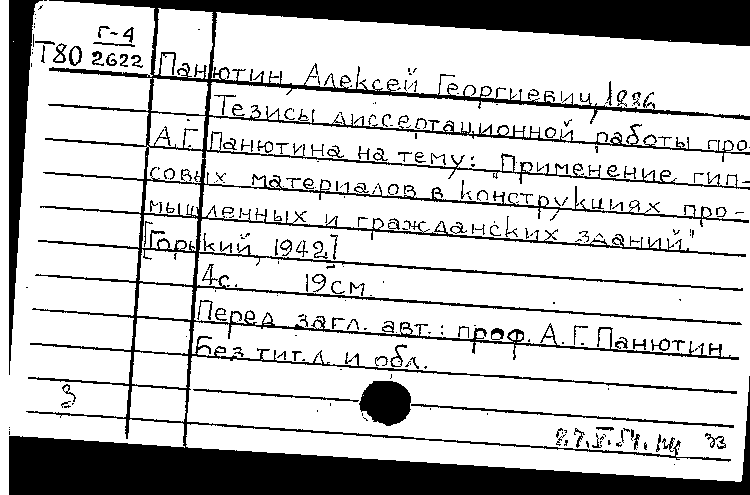 Г-4
Т80 2622
Панютин, Алексей Георгиевич, 1886
Тезисы диссертационной работы про
А.Г. Панютина на тему: "Применение гип-
совых материалов в конструкциях про-
мышленных и гражданских зданий."
[Горький, 1942]
4с. 19см.
Перед загл. авт.: проф. А.Г. Панютин.
Без тит.л. и обл.
3
33